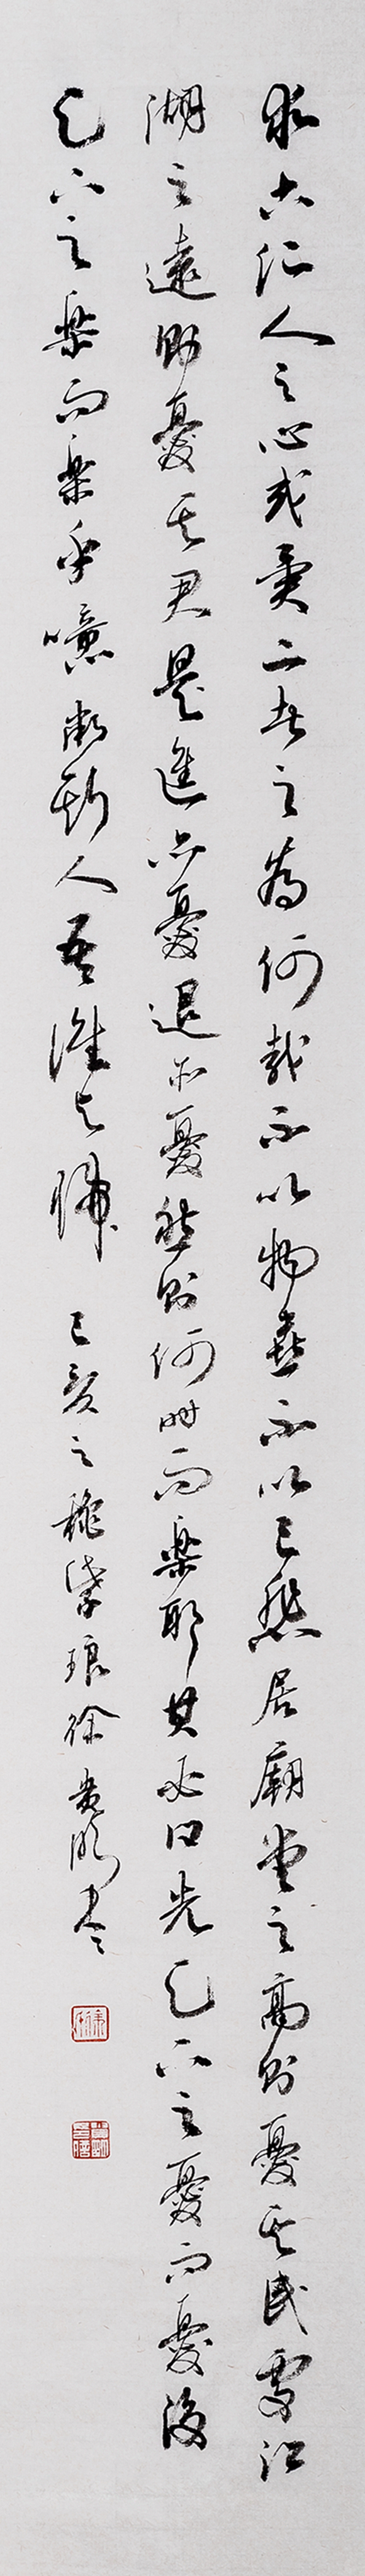 求古仁人之心或異二者之為何哉不以物喜不以己悲居廟堂之高則憂其民處江
湖之遠則憂其君是進亦憂退亦憂然則何時而樂耶其必曰先天下之憂而憂後
天下之樂而樂乎噫微斯人吾誰與歸 己亥之穐紫琅徐貴明